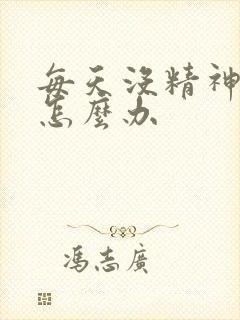 每天沒精神
怎麼办
馮志廣